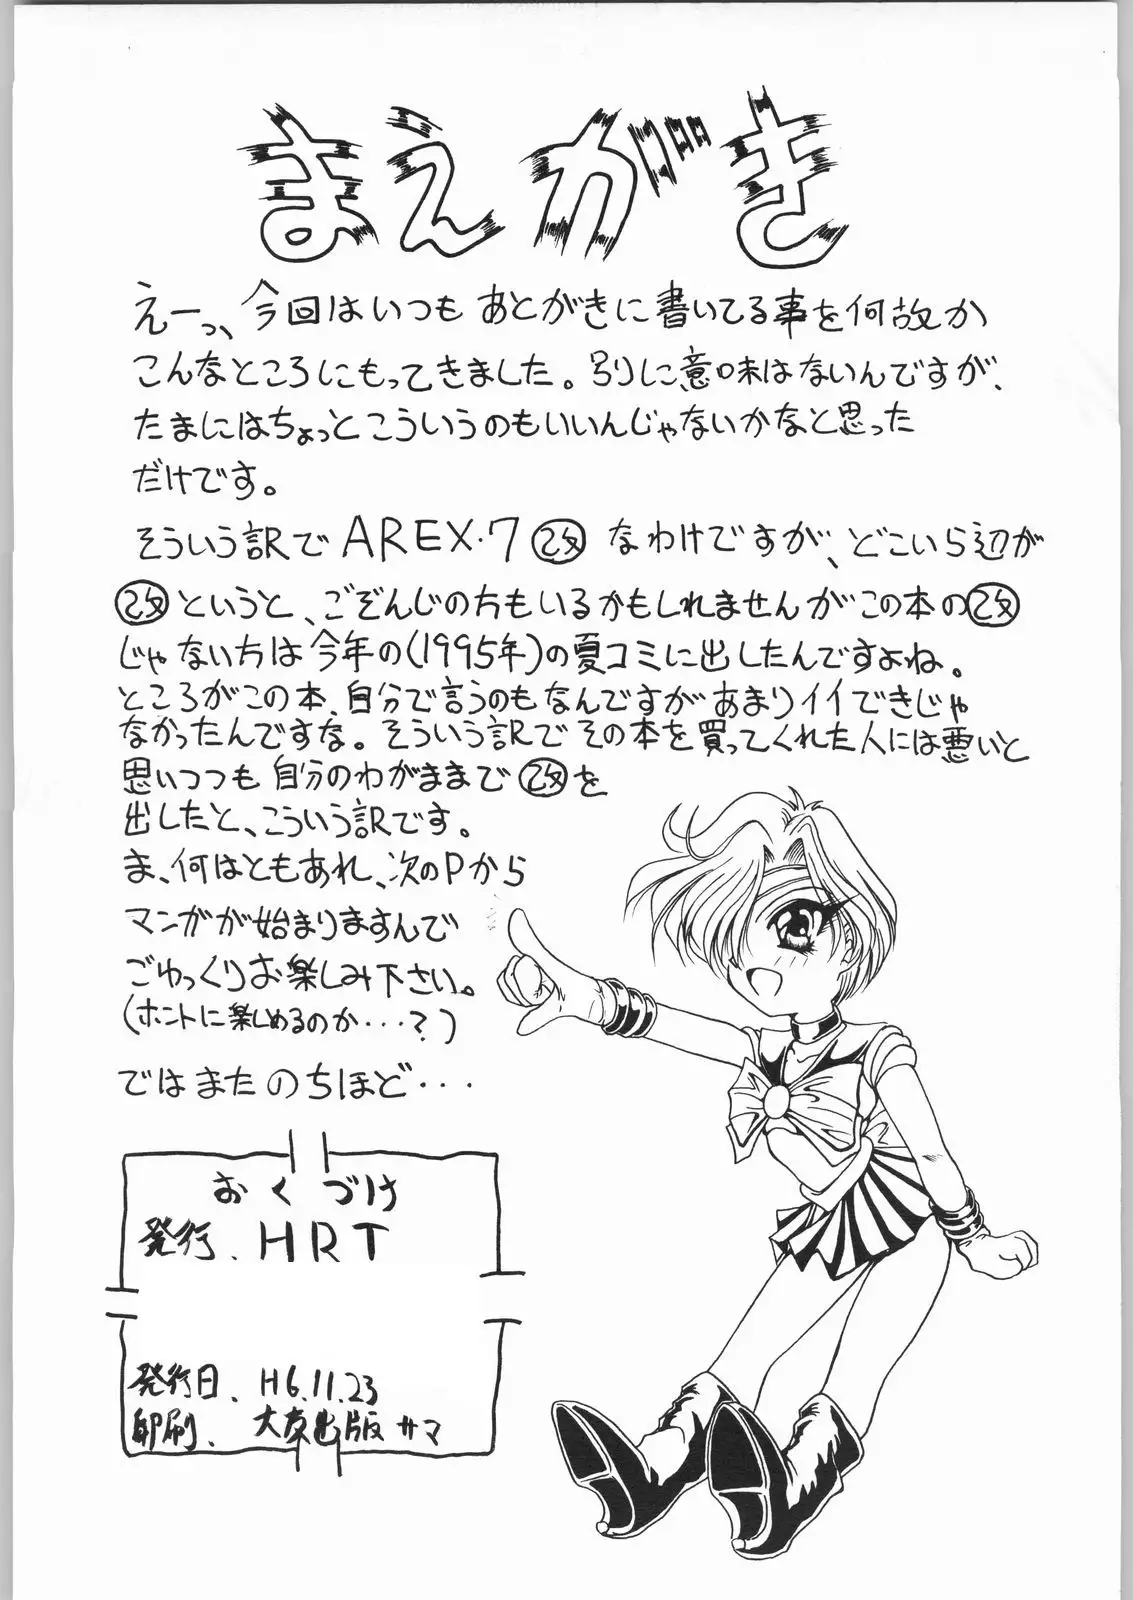 まえがき
えーっ、今回はいつもあとがきに書いてる事を何故か
こんなところにもってきました。別に意味はないんですが、
たまにはちょっとこういうのもいいんじゃないかなと思った
だけです。
そういう訳でAREX・7 改 なわけですが、どこいら辺が
改というと、ごぞんじの方もいるかもしれませんがこの本の改
じゃない方は今年の(1995年)の夏コミに出したんですよね。
ところがこの本、自分で言うのもなんですがあまりイイできじゃ
なかったんですな。そういう訳でその本を買ってくれた人には悪いと
思いつつも自分のわがままで改を
出したと、こういう訳です。
ま、何はともあれ、次のPから
マンガが始まりますんで
ごゆっくりお楽しみ下さい。
(ホントに楽しめるのか・・・?)
ではまたのちほど・・・
おくづけ
発行、HRT
発行日、H6.11.23
印刷、大友出版サマ